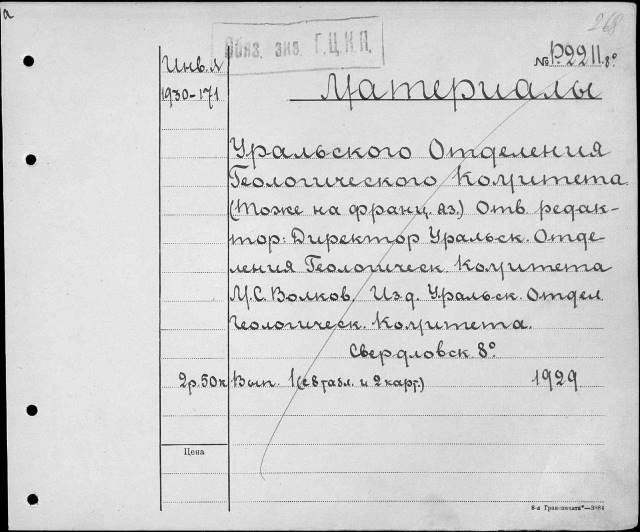 а
268
Обяз. экз. Г.Ц.К.П.
Инв. Л
1930-171
№ Р.22 II. 8°
Материалы
Уральского Отделения
Геологического Комитета.
(Тоже на франц. яз.) Отв. редак-
тор: Директор Уральск. Отде-
ления Геологическ. Комитета
М.С. Волков. Изд. Уральск. Отдел.
Геологическ. Комитета.
Свердловск. 8°.
2р. 50к. Вып. 1 (с 8 табл. и 2 карт.) 1929
Цена